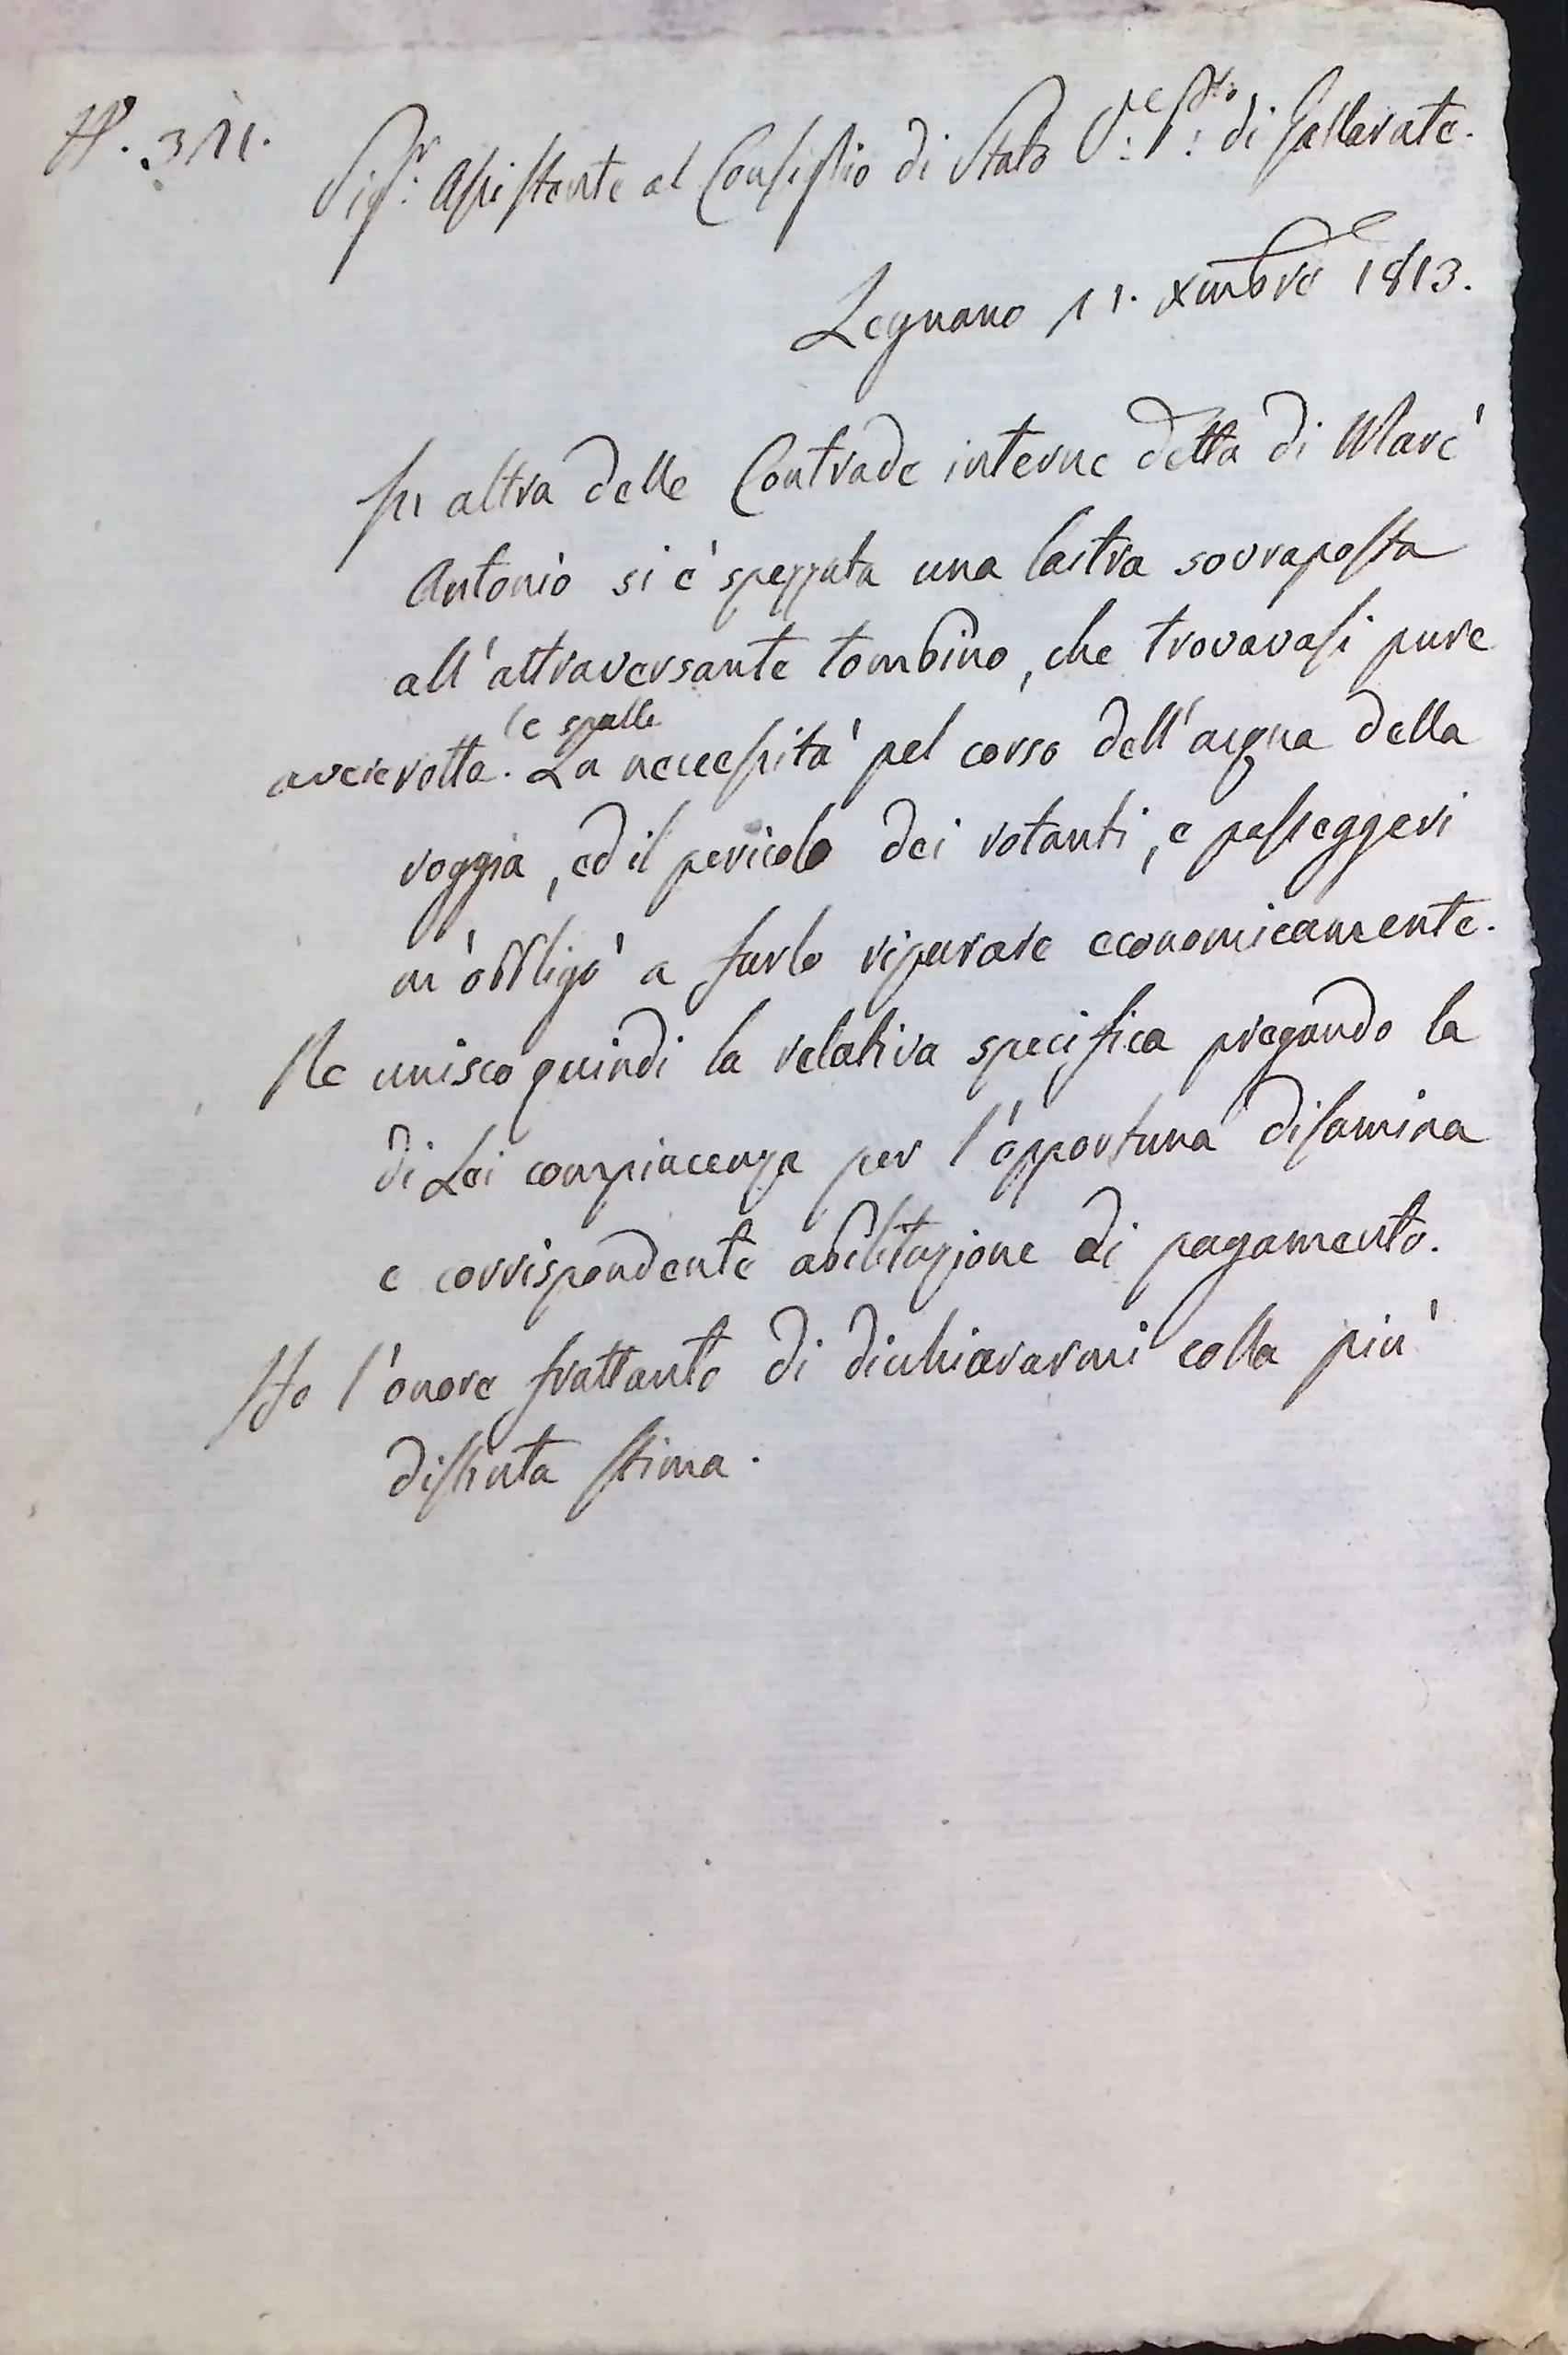 N°. 311.
Sig.r Assistente al Consiglio di Stato V.e P.to di Gallarate.
Legnano 11. Xmbre 1813.
In altra delle Contrade interne detta di Marc'
Antonio si è spezzata una lastra sovraposta
all'attraversante tombino, che trovavasi pure
le spalle
avere rotte. La necessità pel corso dell'acqua della
roggia, ed il pericolo dei rotanti, e passeggeri
m'obbligò a farlo riparare economicamente.
Ne unisco quindi la relativa specifica pregando la
di Lei compiacenza per l'opportuna disamina
e corrispondente abilitazione di pagamento.
Ho l'onore frattanto di dichiararmi colla più
distinta stima.